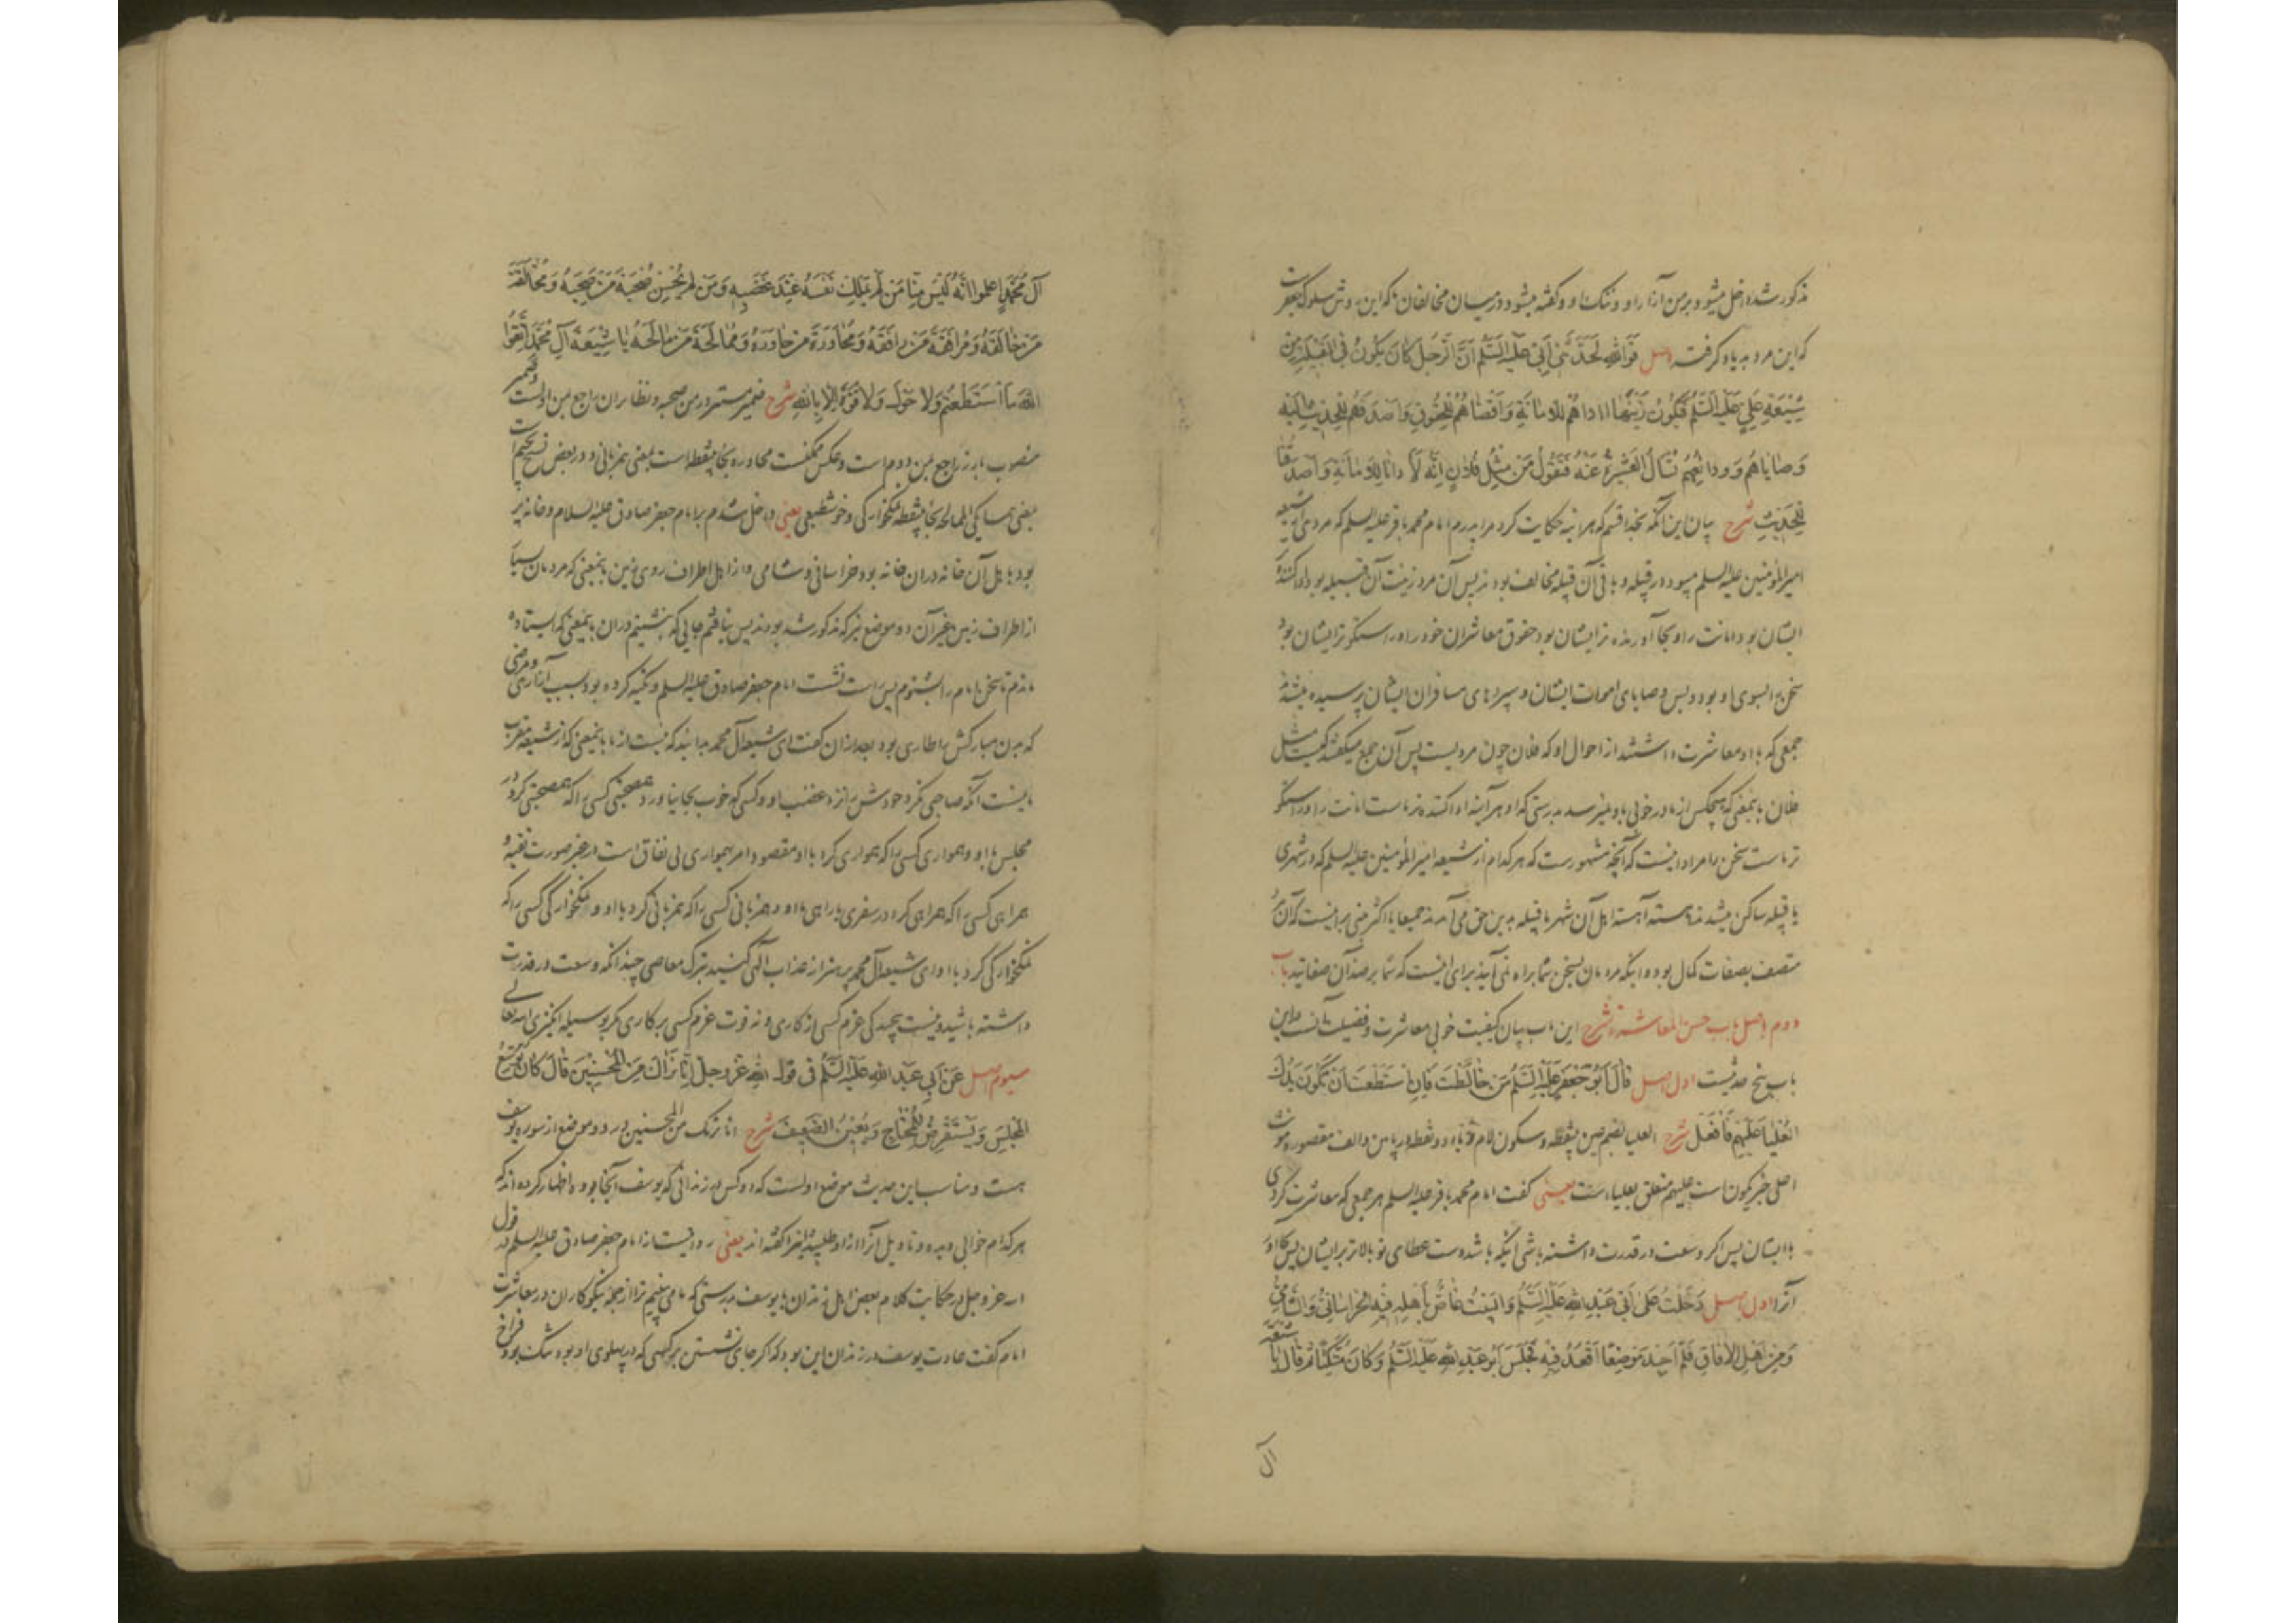 مذکور شده داخل میشود بر من آزار او و ننک او و کفته میشود در میان مخالفان که این روش سلوک جعفر است
که این مرد به یاد کرفت اصل فَوَاللهِ لَحَدَّثَنی اَبی عَلَیهِ السَّلَمُ اَنَّ الرَّجُلَ کَانَ یَکُونُ فِی القَبیلَةِ مِن
شِیعَةِ عَلِیٍّ عَلَیهِ السَّلَمُ فَیَکُونُ زَینَها اٰداهُم لِلاَمانَةِ وَاَقضاهُم لِلحُقُوقِ وَاَصدَقَهُم لِلحَدیثِ اِلَیهِ
وَصایاهُم وَوَدائِعُهُم تُسأَلُ العَشیرَةُ عَنهُ فَتَقُولُ مَن مِثلُ فُلانٍ اِنَّهُ لَاٰدانا لِلاَمانَةِ وَاَصدَقُنا
لِلحَدیثِ شرح بیان این آنکه بخدا قسم که هر اینه حکایت کرد مرا پدرم امام محمد باقر علیه السلم که مردی از شیعه
امیر المؤمنین علیه السلم میبود در قبیله و باقی آن قبیله مخالف بودند پس آن مرد زینت آن قبیله بود ادا کننده
ایشان بود امانت را و بجا آورنده تر ایشان بود حقوق معاشران خود را و راستکوتر ایشان بود
سخن را بسوی او بود و بس وصایای اموات ایشان و سپردهای مسافران ایشان پرسیده میشدند
جمعی که با او معاشرت داشتند از احوال او که فلان چون مردیست پس آن جمع میکفتند کیست مثل
فلان باینمعنی که هیچکس از ما در خوبی باو نمیرسد بدرستی که او هر آینه ادا کننده تر ماست امانت را و راستکو
تر ماست سخن را مراد اینست که آنچه مشهورست که هر کدام از شیعه امیر المؤمنین علیه السلم که در شهری
یا قبیله ساکن میشدند آهسته آهسته اهل آن شهر یا قبیله بدین حق می آمدند جمیعا یا اکثر مبنی بر اینست که آن مرد
متصف بصفات کمال بود و اینکه مردمان بسخن شما براه نمی آیند برای اینست که شما بر ضد آن صفاتید باب
دوم اصل باب حسن المعاشرة شرح این باب بیان کیفیت خوبی معاشرت و فضیلت آنست در این
باب پنج حدیثست اول اصل قالَ اَبُو جَعفَرٍ عَلَیهِ السَّلَمُ مَن خالَطتَ فَاِنِ استَطَعتَ اَن تَکُونَ یَدُکَ
العُلیا عَلَیهِم فَافعَل شرح العلیا بضم عین بینقطه و سکون لام و یاء دو نقطه در پایین و الف مقصوره مونث
اعلی خبر تکون است علیهم متعلق بعلیاست یعنی کفت امام محمد باقر علیه السلم هر جمعی که معاشرت کردی
با ایشان پس اکر وسعت و قدرت داشته باشی اینکه باشد دست عطای تو بالاتر بر ایشان پس بکار آور
آنرا اول اصل دَخَلتُ عَلی اَبی عَبدِ اللهِ عَلَیهِ السَّلَمُ وَالبَیتُ غاصٌّ بِاَهلِهِ فیهِ الخُراسانِیُّ وَالشّامِیُّ
وَمِن اَهلِ الاٰفاقِ فَلَم اَجِد مَوضِعًا اَقعُدُ فیهِ فَجَلَسَ اَبُو عَبدِ اللهِ عَلَیهِ السَّلَمُ وَکانَ مُتَّکِئًا ثُمَّ قالَ یا شیعَةَ
آل
آلِ مُحَمَّدٍ اعلَموا اَنَّهُ لَیسَ مِنّا مَن لَم یَملِک نَفسَهُ عِندَ غَضَبِهِ وَمَن لَم یُحسِن صُحبَةَ مَن صَحِبَهُ وَمُخالَقَةَ
مَن خالَقَهُ وَمُرافَقَةَ مَن رافَقَهُ وَمُحاوَرَةَ مَن حاوَرَهُ وَمُمالَحَةَ مَن مالَحَهُ یا شیعَةَ آلِ مُحَمَّدٍ اتَّقُوا
اللهَ مَا استَطَعتُم وَلا حَولَ وَلا قُوَّةَ اِلّا بِاللهِ شرح ضمیر مستتر در من صحبه و نظایر آن راجع بمن اولست و ضمیر
منصوب بارز راجع بمن دوم است و عکس ممکنست محاوره بحا بینقطه است بمعنی همزبانی و در بعض نسخ بجیم است
بمعنی همسایکی الممالحة بحا بینقطه نمکخوارکی و خوشطبعی یعنی داخل شدم بر امام جعفر صادق علیه السلام و خانه پر
بود باهل آن خانه در آن خانه بود خراسانی و شامی و از اهل اطراف روی زمین باینمعنی که مردمان بسیار
از اطراف زمین غیر آن دو موضع نیز که مذکور شد بودند پس نیافتم جایی که بنشینم در آن باینمعنی که ایستاده
ماندم تا سخن امام را بشنوم پس راست نشست امام جعفر صادق علیه السلم و تکیه کرده بود بسبب آزاری و مرضی
که ببدن مبارکش طاری بود بعد از آن کفت ای شیعه آل محمد بدانید که نیست از ما باینمعنی که از شیعه مقرب
ما نیست آنکه صاحبی نکرد خودش را نزد غضب او و کسی که خوب بجا نیاورد همصحبتی کسی را که همصحبتی کرد در
مجلس با او و همواری کسی را که همواری کرد با او مقصود امر بهمواری بی نفاق است در غیر صورت تقیه و
همراهی کسی را که همراهی کرد در سفری یا راهی با او و همزبانی کسی را که همزبانی کرد با او و نمکخوارکی کسی را که
نمکخوارکی کرد با او ای شیعه آل محمد پرهیز از عذاب الهی کنید بترک معاصی چندانکه وسعت و قدرت
داشته باشید و نیست پیچیدکی عزم کسی از کاری و نه قوت عزم کسی بر کاری مکر بوسیله انکیزی الله تعالی
سیوم اصل عَن اَبی عَبدِ اللهِ عَلَیهِ السَّلَمُ فی قَولِ اللهِ عَزَّ وَجَلَّ اِنّا نَراکَ مِنَ المُحسِنینَ قالَ کانَ یُوَسِّعُ
المَجلِسَ وَیَستَقرِضُ لِلمُحتاجِ وَیُعینُ الضَّعیفَ شرح انا نریک من المحسنین در دو موضع از سوره یوسف
هست و مناسب این حدیث موضع اولست که دو کس در زندانی که یوسف آنجا بوده اظهار کرده اند که
هر کدام خوابی دیده و تاویل آنرا از او طلبیده اند و اینرا کفته اند یعنی روایتست از امام جعفر صادق علیه السلم در قول
الله عز و جل در حکایت کلام بعض اهل زندان با یوسف بدرستی که ما می بینیم ترا از جمله نیکوکاران در معاشرت
امام کفت عادت یوسف در زندان این بود که اکر جای نشستن بر کسی که در پهلوی او بود تنک بود فراخ